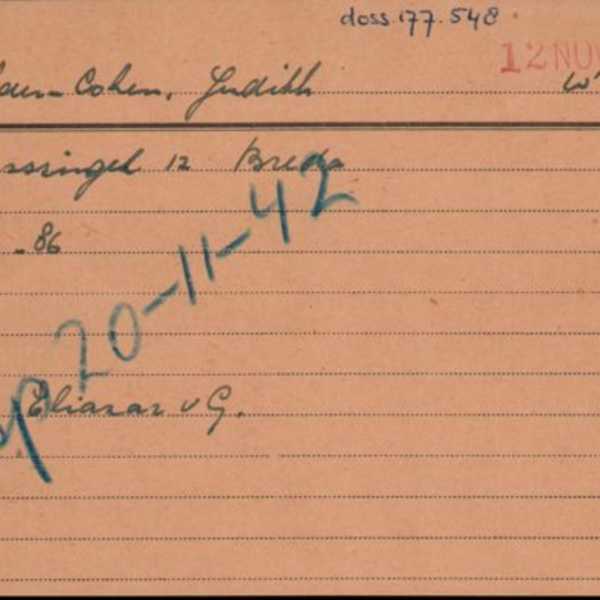 doss. 177.548
12 NOV
Cohen, Judith
singel 12 Breda
-86
20-11-42
Eliazar v G.